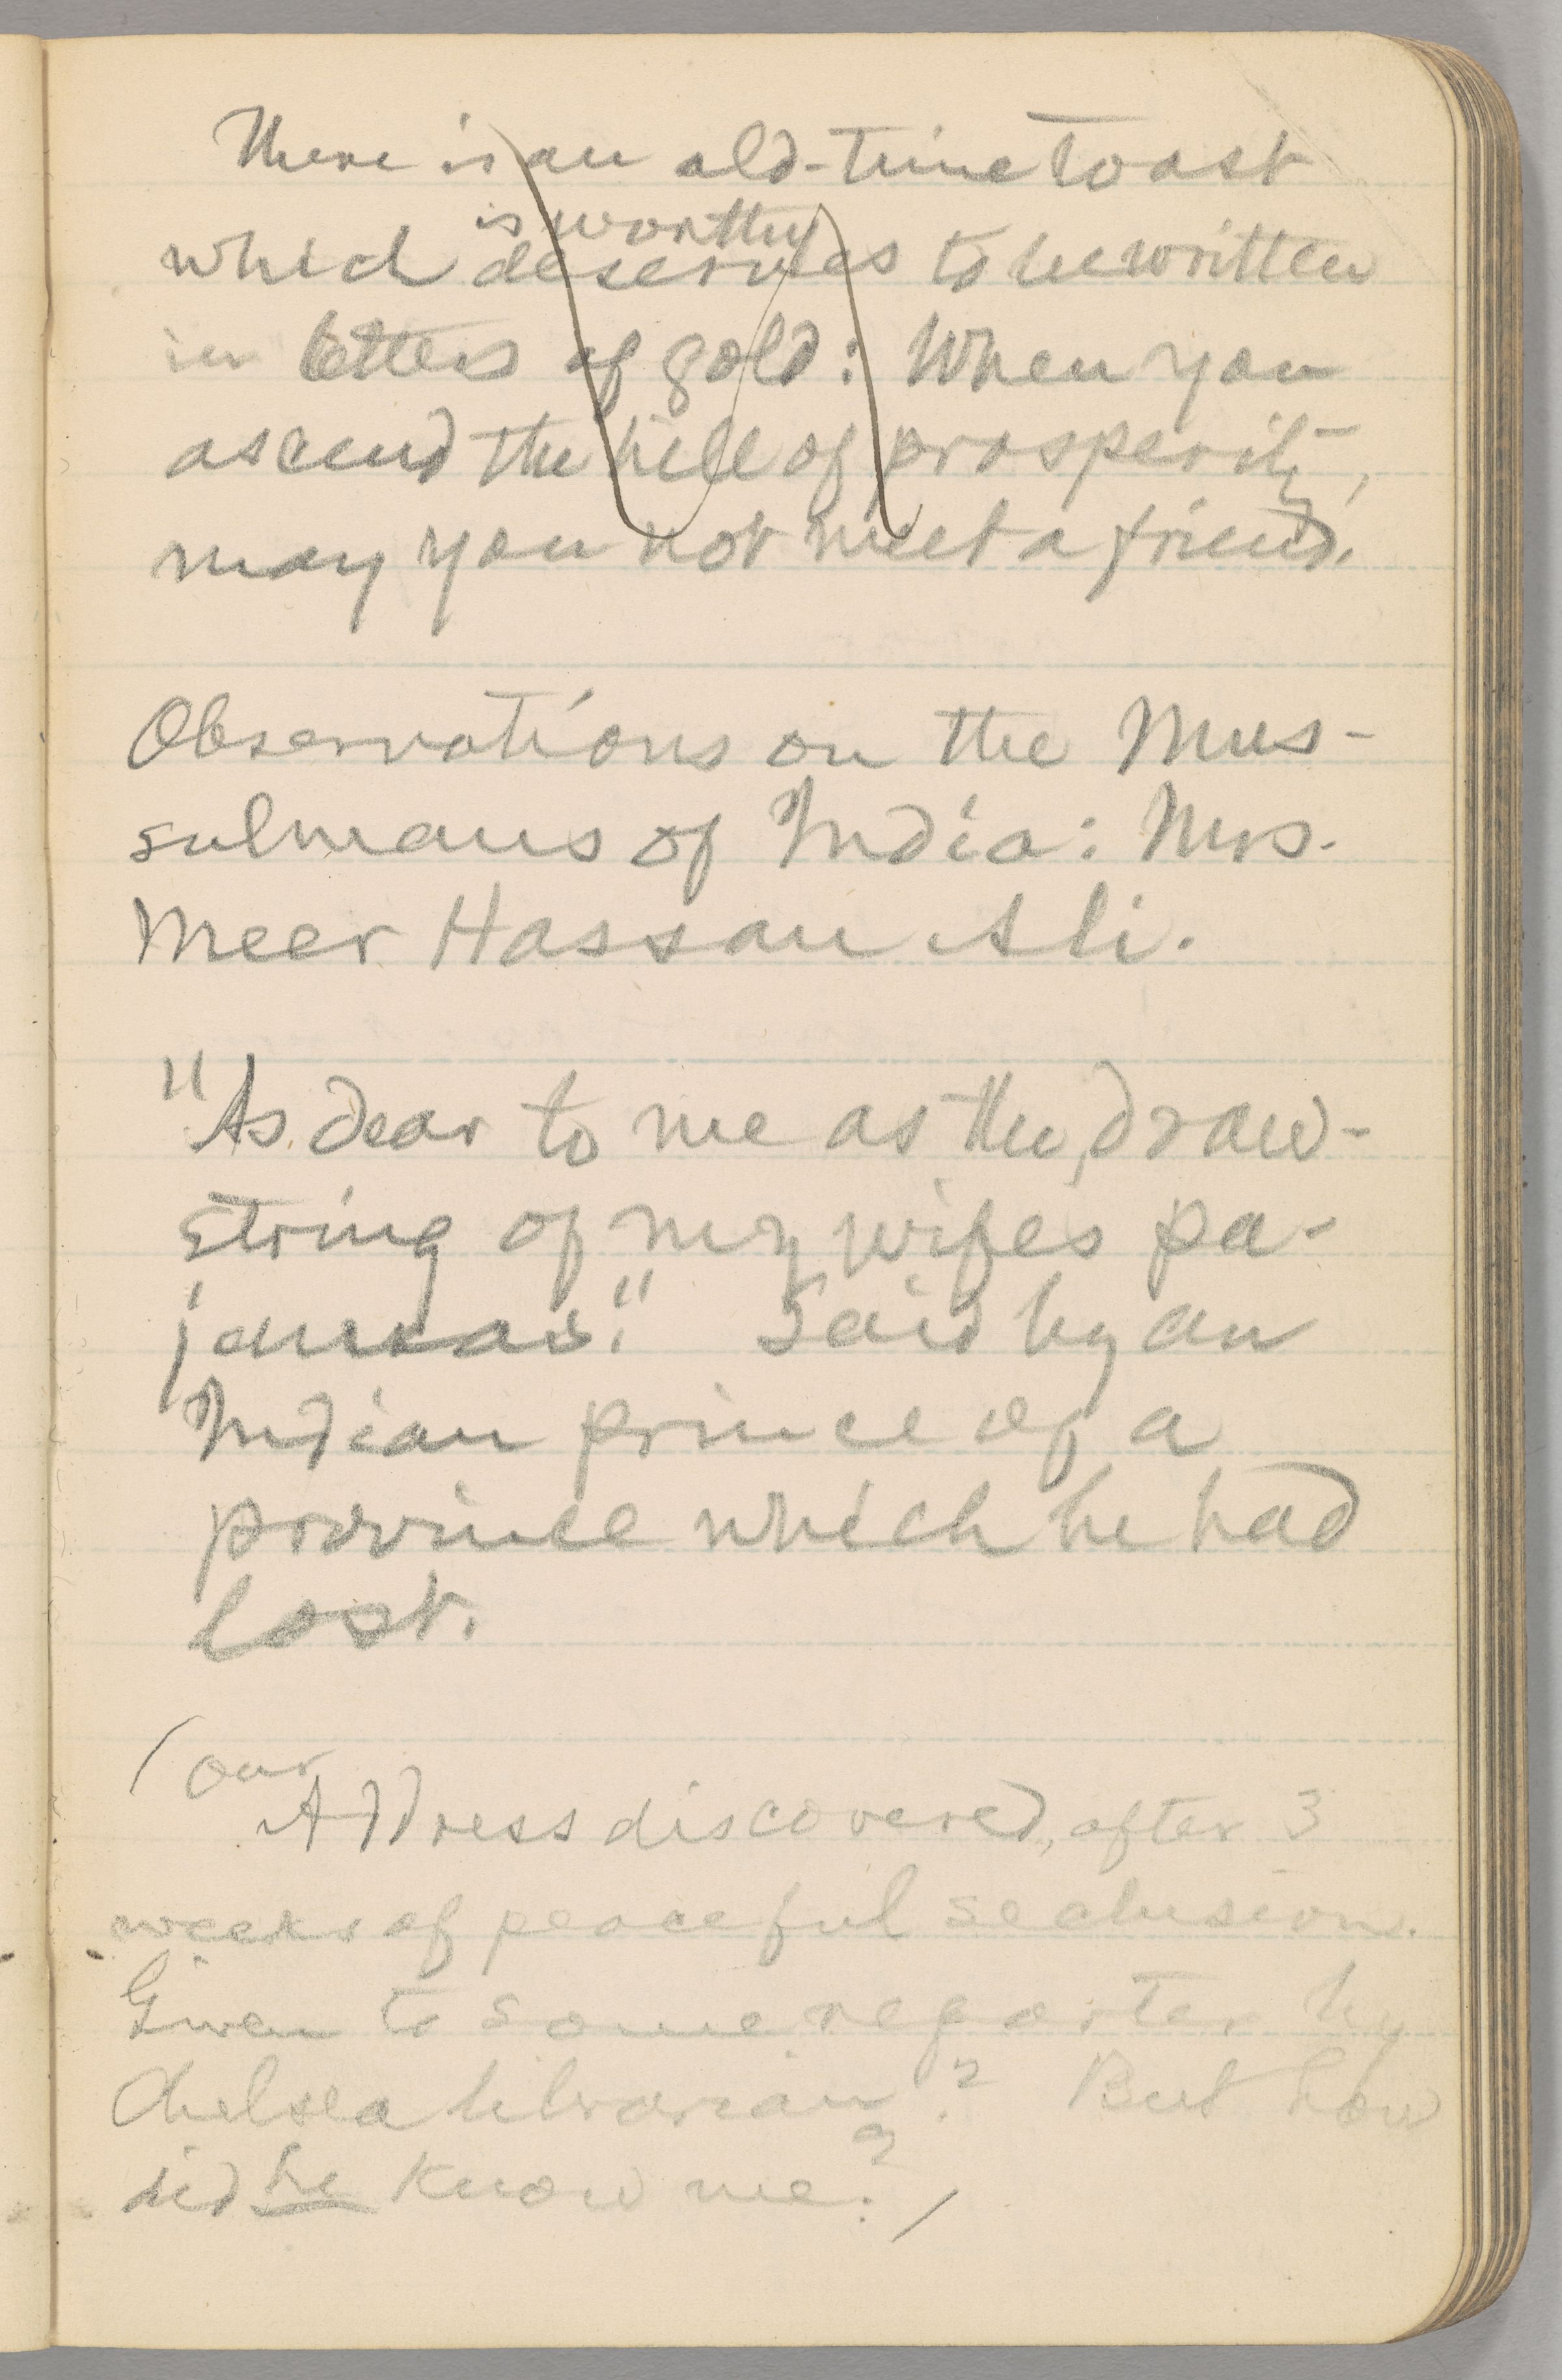 There is an old-time toast
is worthy
which deserves to be written
in letters of gold: When you
ascend the hill of prosperity,
may you not meet a friend.
Observations on the Mus-
sulmans of India: Mrs.
Meer Hassan Ali.
"As dear to me as the draw-
string of my wifes pa-
jamas." Said by an
Indian prince of a
province which he had
lost.
(Our
Address discovered, after 3
weeks of peaceful seclusion.
Given to some reporter by
Chelsea librarian? But how
did he know me?)